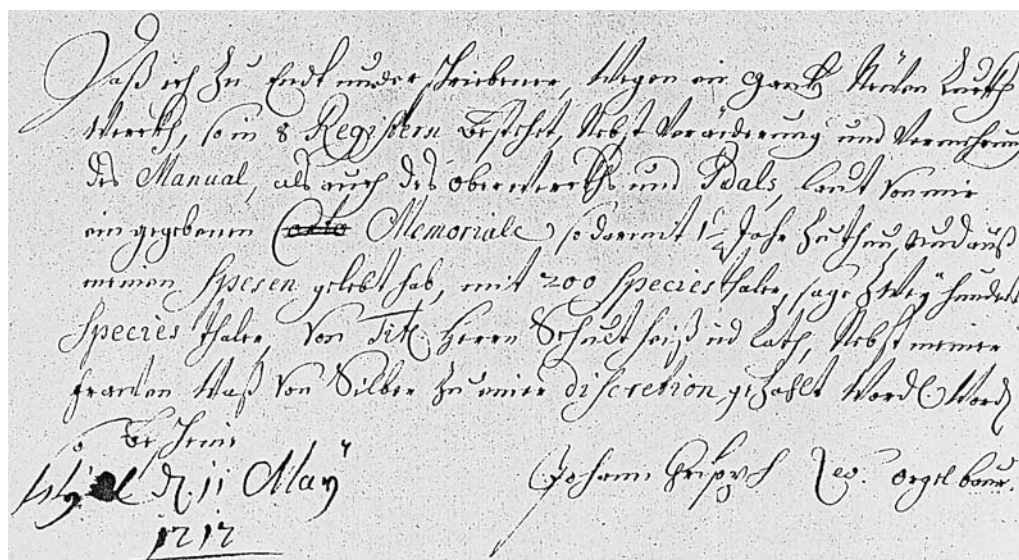 Daß ich Zu Endt under schriebener, Wegen ein gantz Neüen Ruckh
Werckh, so in 8 Registern Bestehet, Nebst Veränderung und Vermehrung
des Manual, als auch des oberwerckhs und Pedals, laut von mir
ein gegebenen Conto Memoriale, so darmit 1½ Jahr Zu thun, und auß
meinen Spesen gelebt hab, mit 200 Species thaler, sage Zwey hundert
Species thaler, Von Tit. Herrn Schultheiß und Rath, Nebst meiner
frauen Waß Von Silber Zu einer discretion, gezahlt
Bescheine
d. 11 May
1717
Johann Leo. orgel baur.